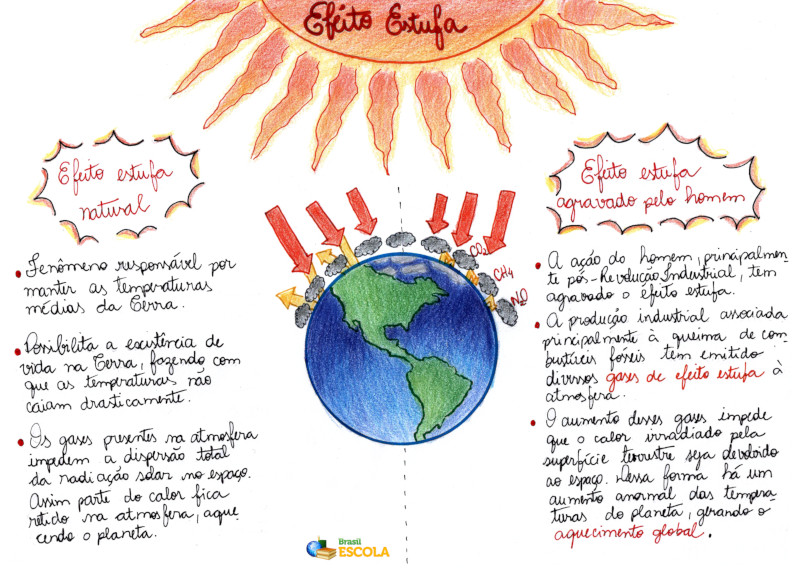 Efeito Estufa
Efeito estufa
natural
• Fenômeno responsável por
manter as temperaturas
médias da Terra.
• Possibilita a existência de
vida na Terra, fazendo com
que as temperaturas não
caiam drasticamente.
• Os gases presentes na atmosfera
impedem a dispersão total
da radiação solar no espaço.
Assim parte do calor fica
retido na atmosfera, aque
cendo o planeta.
CO₂
CH₄
N₂O
Efeito estufa
agravado pelo homem
• A ação do homem, principalmen-
te pós-Revolução Industrial, tem
agravado o efeito estufa.
• A produção industrial associada
principalmente à queima de com-
bustíveis fósseis tem emitido
diversos gases de efeito estufa à
atmosfera.
• O aumento desses gases impede
que o calor irradiado pela
superfície terrestre seja devolvido
ao espaço. Dessa forma há um
aumento anormal das tempera-
turas do planeta, gerando o
aquecimento global.
Brasil
ESCOLA